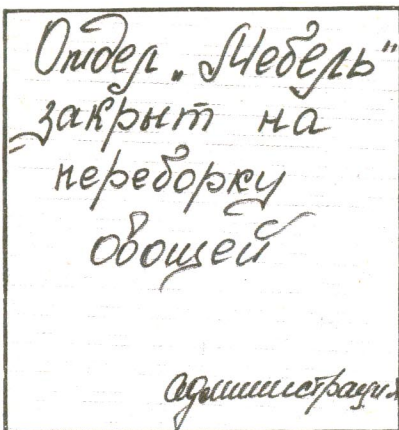 Отдел „Мебель"
закрыт на
переборку
овощей
администрация